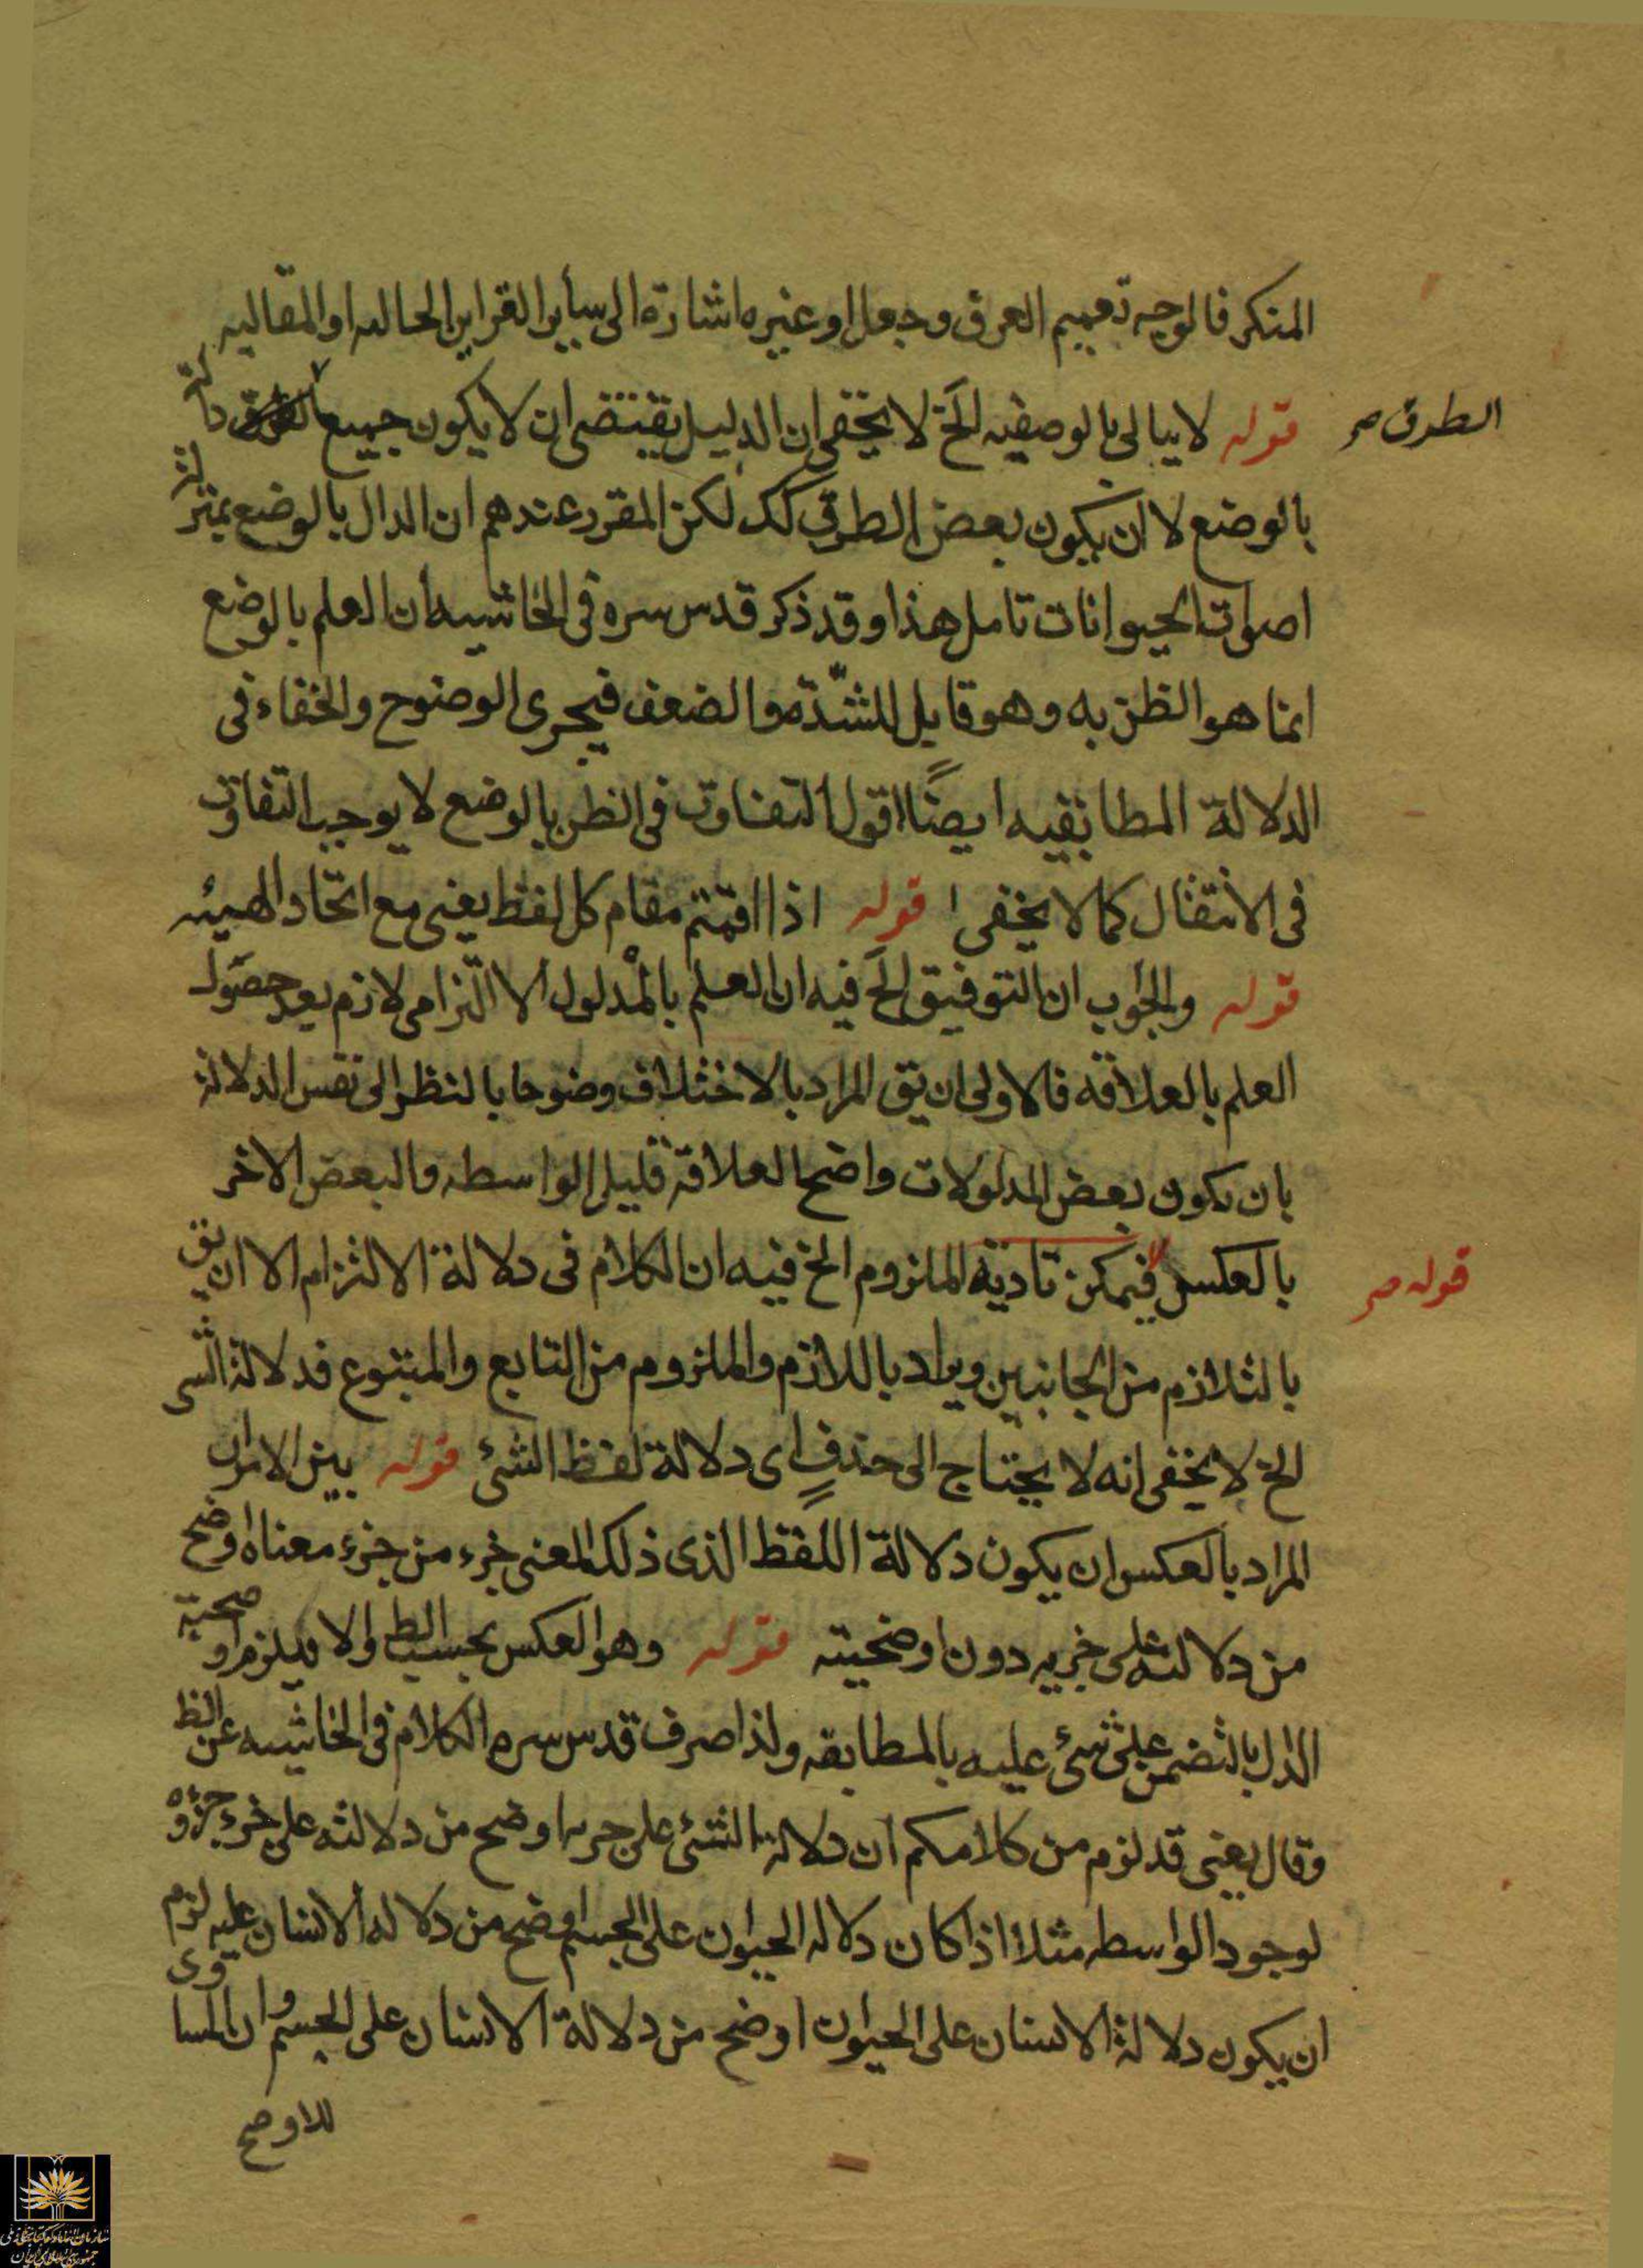 المنكر فالوجه تعميم العرف وجعل او غيره اشارة الى سأير القراين الحاليه او المقاليه
قوله لا يبالى بالوصفيه الخ لا يخفى ان الدليل يقتضى ان لا يكون جميع دالة
الطرق صح
بالوضع لا ان يكون بعض الطرق كك لكن المقرر عندهم ان الدال بالوضع بمنزلة
اصوات الحيوانات تامل هذا وقد ذكر قدس سره فى الحاشيه ان العلم بالوضع
انما هو الظن به وهو قابل للشدّة والضعف فيجرى الوضوح والخفاء فى
الدلالة المطابقيه ايضًا اقول التفاوت فى الظن بالوضع لا يوجب التفاوت
فى الانتقال كما لا يخفى قوله اذا اقمتم مقام كل لفظ يعنى مع اتحاد الهيئه
قوله والجواب ان التوفيق الخ فيه ان العلم بالمدلول الالتزامى لازم بعد حصول
العلم بالعلاقه فالاولى ان يق المراد بالاختلاف وضوحا بالنظر الى نفس الدلالة
بان يكون بعض المدلولات واضح العلاقة قليل الواسطه والبعض الاخر
بالعكس فيمكن تادية الملزوم الخ فيه ان الكلام فى دلالة الالتزام الا ان يق
قوله صح
بالتلازم من الجانبين ويراد باللازم والملزوم من التابع والمتبوع فدلالة الشى
الخ لا يخفى انه لا يحتاج الى حذفٍ اى دلالة لفظ الشئ قوله بين الامران
المراد بالعكس ان يكون دلالة اللفظ الذى ذلك المعنى جزء من جزء معناه اوضح
من دلالته على جزيه دون اوضحيته قوله وهو العكس بحسب الظ والا فيلزم اوضحية
الدال بالتضمن على شئ عليه بالمطابقه ولذا صرف قدس سره الكلام فى الحاشيه عن الظ
وقال يعنى قد لزم من كلامكم ان دلالة الشئ على جزيه اوضح من دلالته على جزء جزؤه
لوجود الواسطه مثلا اذا كان دلاله الحيوان على الجسم اوضح من دلاله الانسان عليه لزم
ان يكون دلالة الانسان على الحيوان اوضح من دلالة الانسان على الجسم وان المساوى
للاوضح